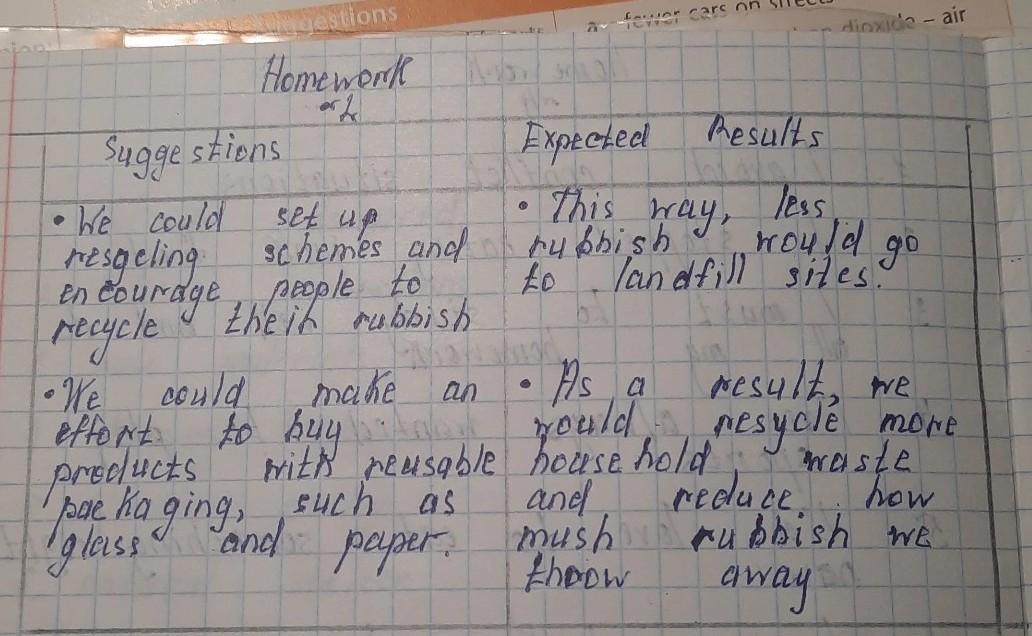 gestions
fewer cars on streets
dioxide – air
Homework
Suggestions
Expected Results
• We could set up
resycling schemes and
encourage people to
recycle their rubbish
• This way, less
rubbish would go
to landfill sites.
• We could make an
effort to buy
products with reusable
packaging, such as
glass and paper.
• As a result, we
would resycle more
household waste
and reduce how
mush rubbish we
thoow away